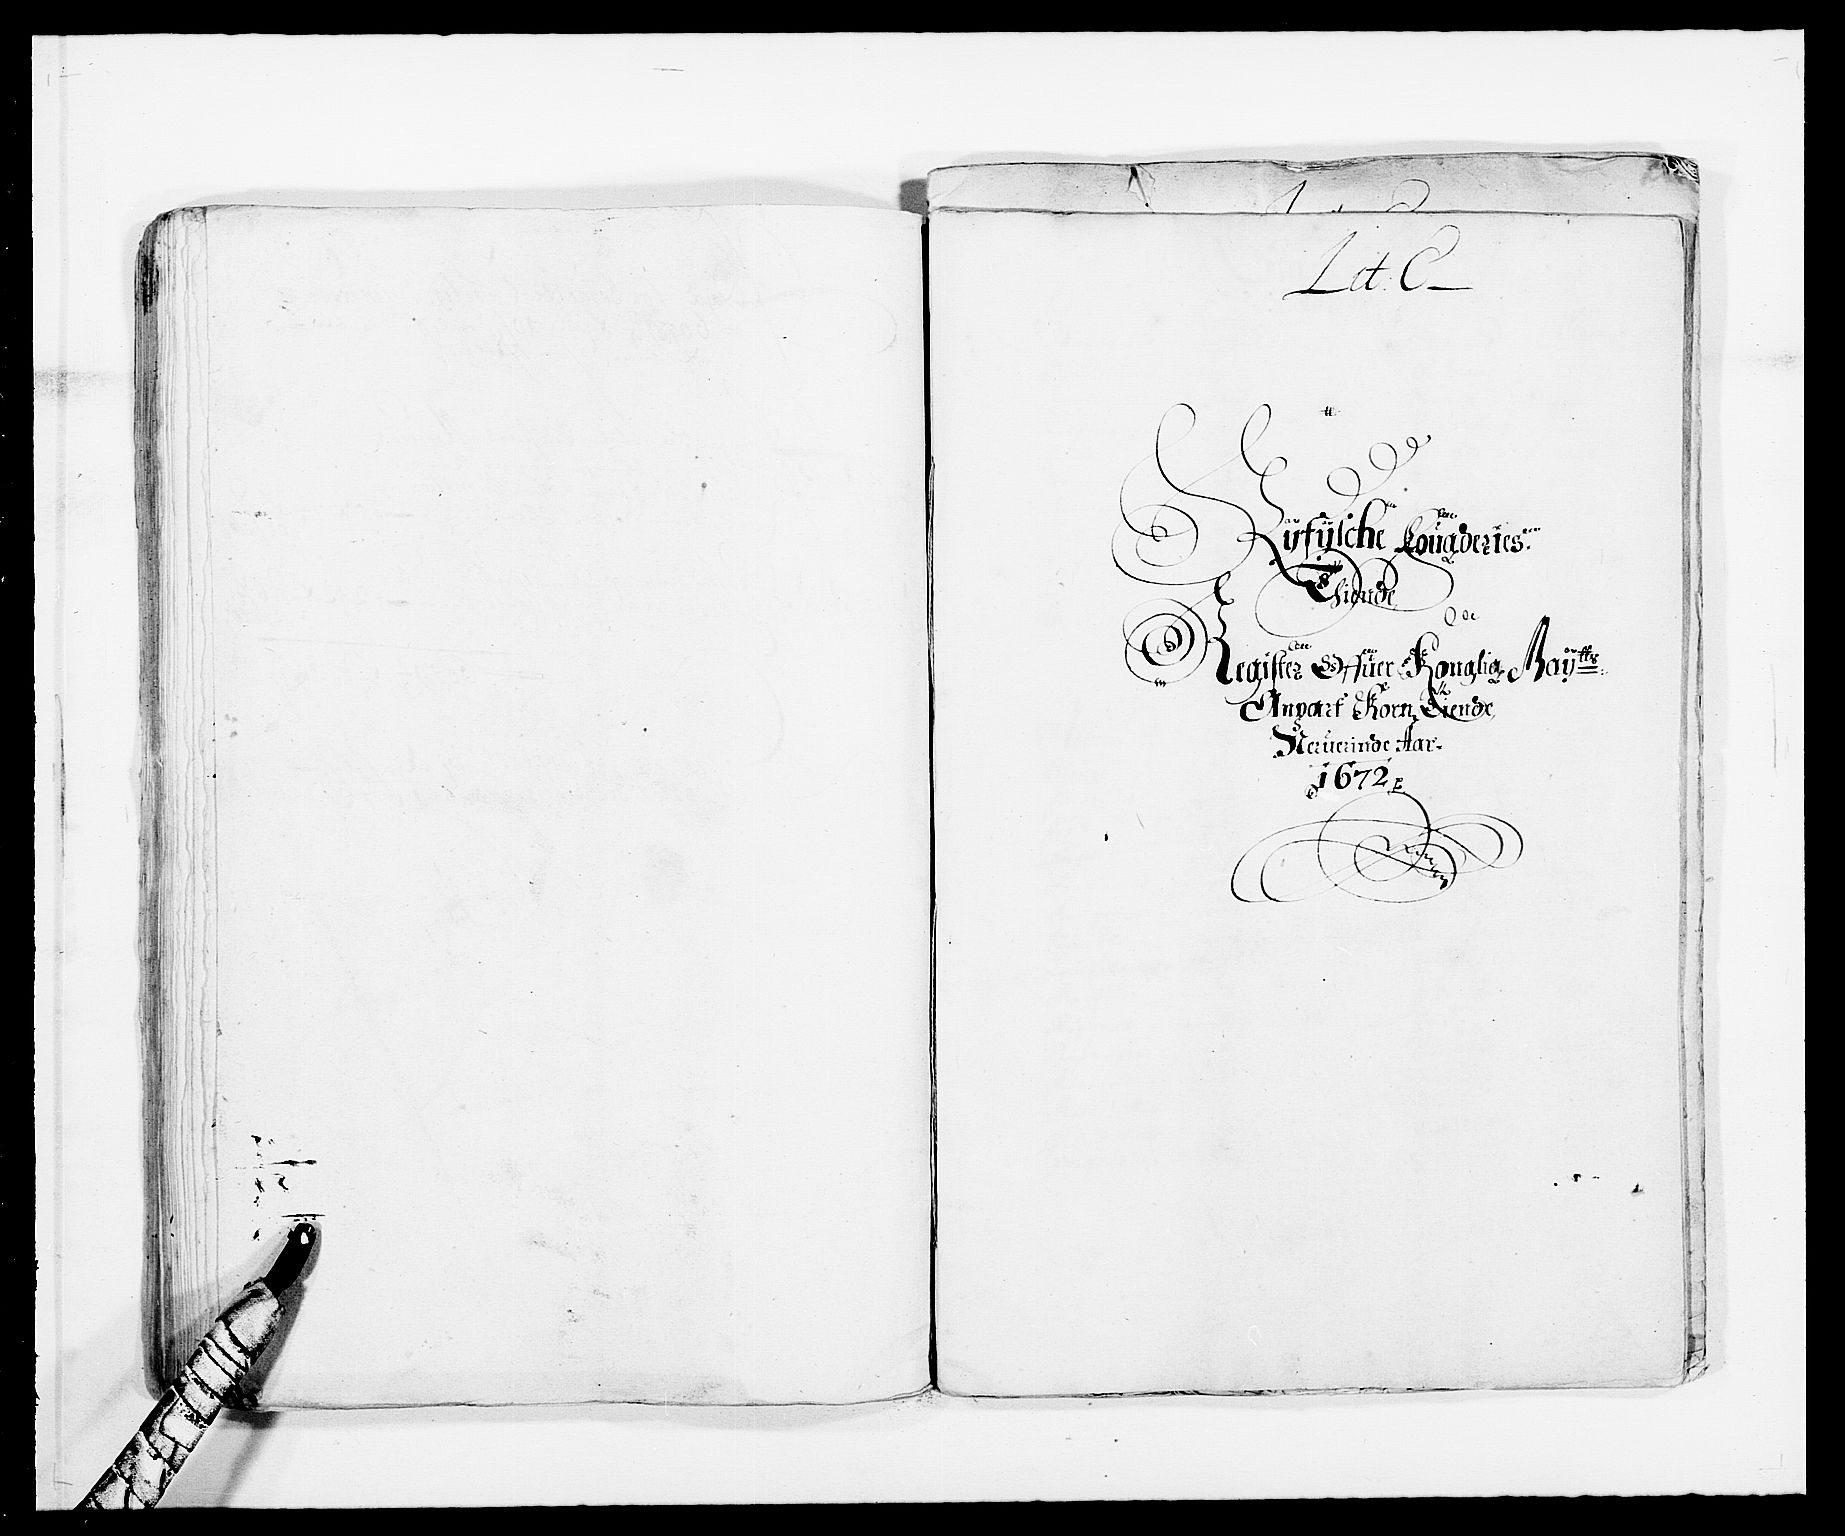 Lit: C
Ryfylche Fougderies
Thiende
Register Offuer Konglig Mayttz
Anpart Korn Tiende
Neruerinde Aar
1672